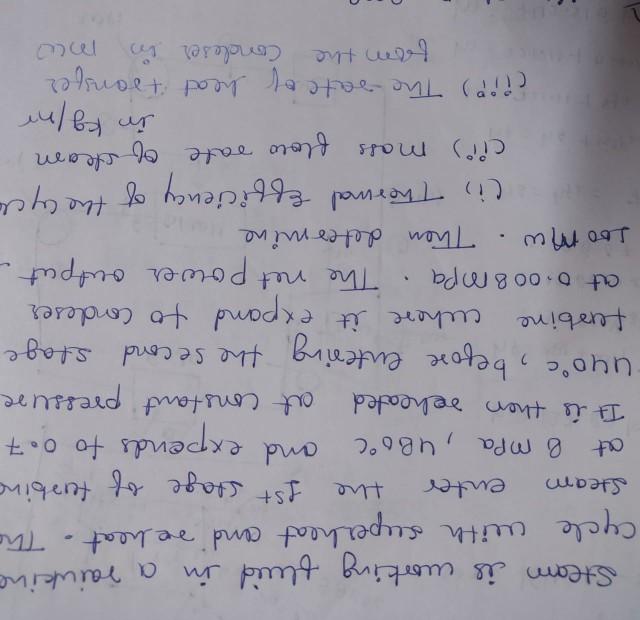 Steam is working fluid in a rainkine
cycle with superheat and reheat. The
steam enter the 1st stage of turbine
at 8 mPa, 480°c and expends to 0.7
It is then reheated at constant pressure
440°c, before entering the second stage
turbine where it expand to condeser
at 0.008 mPa. The net power output
100 Mw. Then determine
(i) Thermal Efficiency of the cycle
(ii) mass flow rate of steam
in kg/hr
(iii) The rate of heat transfer
from the condeser in mw